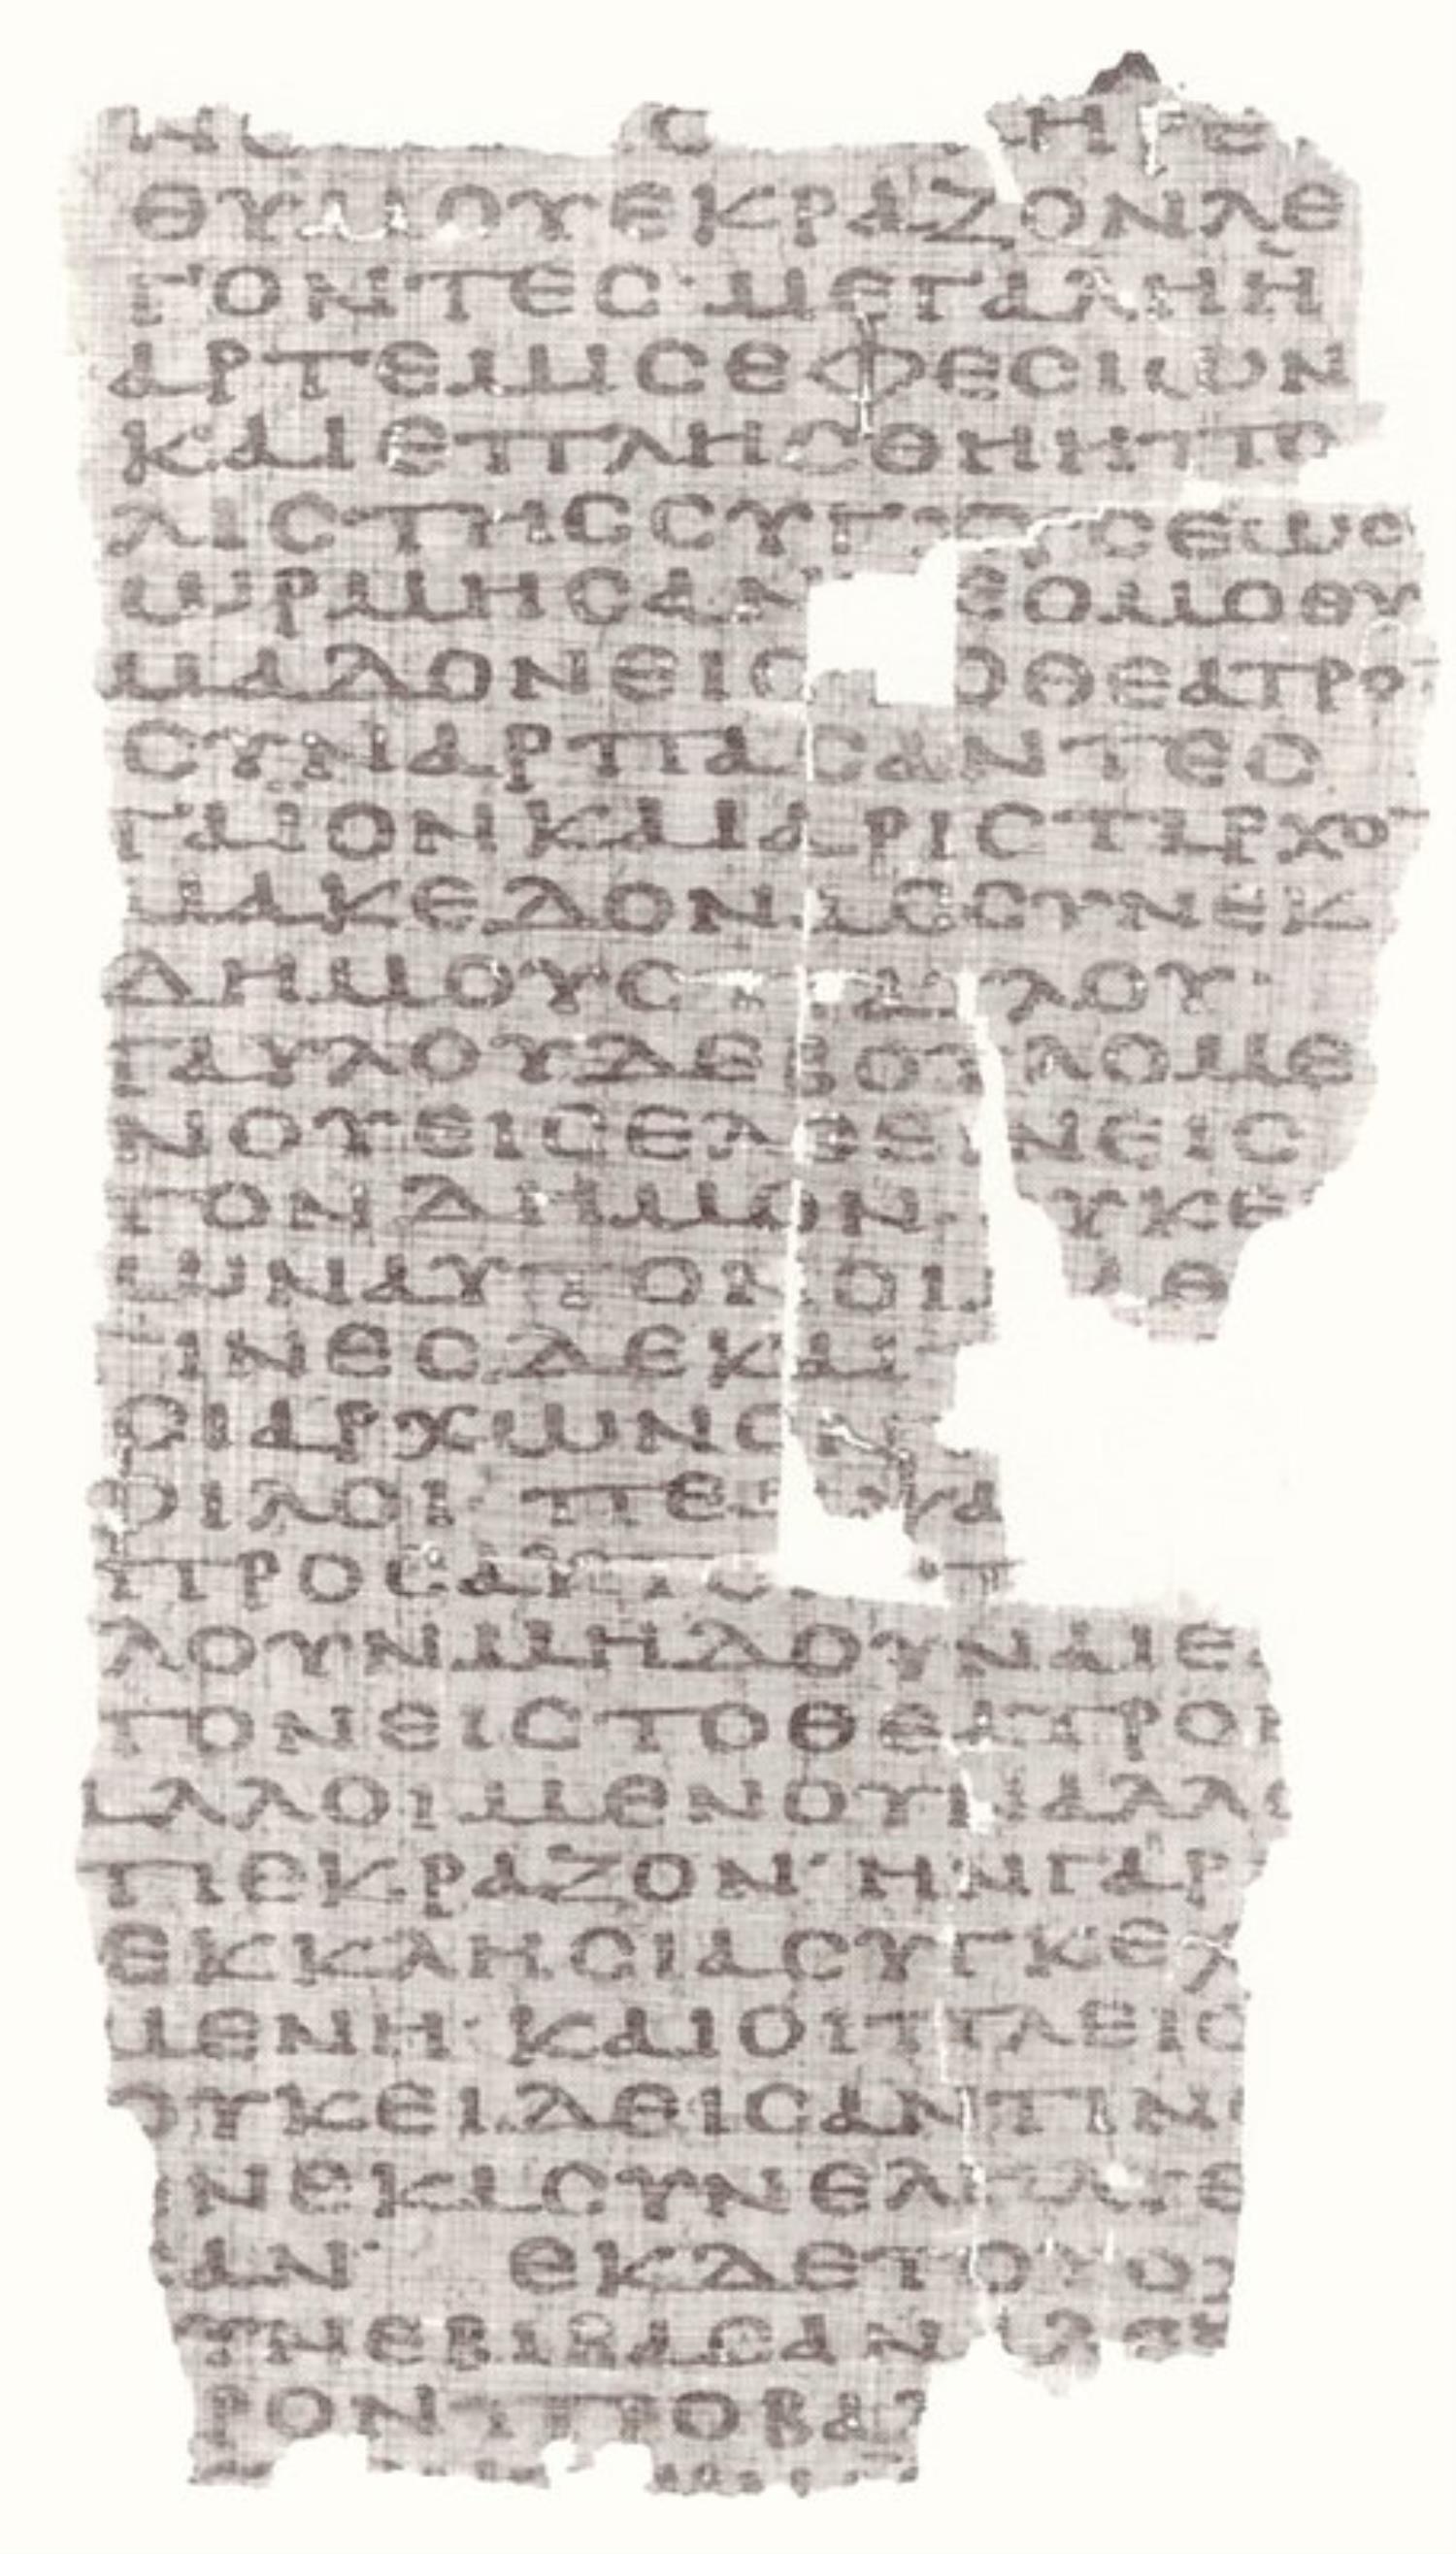 ΘΥΜΟΥΕΚΡΑΖΟΝΛΕ
ΓΟΝΤΕС·ΜΕΓΑΛΗΗ
ΑΡΤΕΜΙСΕΦΕСΙΩΝ
ΚΑΙΕΠΛΗСΘΗΗΠΟ
ΛΙСΤΗССΥΓ СΕΩС
ΩΡΜΗСΑΝ ΕΟΜΟΘΥ
ΜΑΔΟΝΕΙС ΟΘΕΑΤΡΟ
СΥΝΑΡΠΑСΑΝΤΕС
ΓΑΙΟΝΚΑΙΑΡΙСΤΑΡΧΟ
ΜΑΚΕΔΟΝΑССΥΝΕΚ
ΔΗΜΟΥС ΛΟΥ·
ΠΑΥΛΟΥΔΕΒΟΥΛΟΜΕ
ΝΟΥΕΙСΕΛΘΕΙΝΕΙС
ΤΟΝΔΗΜΟΝ ΥΚΕ
ΩΝΑΥΤΟΝΟΙ Θ
ΤΙΝΕСΔΕΚΑΙ
ΟΙΑΡΧΩΝΟ
ΦΙΛΟΙ ΠΕ ΨΑ
ΠΡΟСΑΥΤΟ Π
ΛΟΥΝΜΗΔΟΥΝΑΙΕ
ΤΟΝΕΙСΤΟΘΕΑΤΡΟΝ
ΑΛΛΟΙΜΕΝΟΥΝΑΛΛΟ
ΤΙΕΚΡΑΖΟΝ·ΗΝΓΑΡ
ΕΚΚΛΗСΙΑСΥΓΚΕΧ
ΜΕΝΗ·ΚΑΙΟΙΠΛΕΙΟ
ΟΥΚΕΙΔΕΙСΑΝΤΙΝ
ΝΕΚΑСΥΝΕΛ Ε
ΑΝ· ΕΚΔΕΤΟΥΟ
ΥΝΕΒΙΒΑСΑΝ
ΡΟΝ ΠΡΟΒΑ